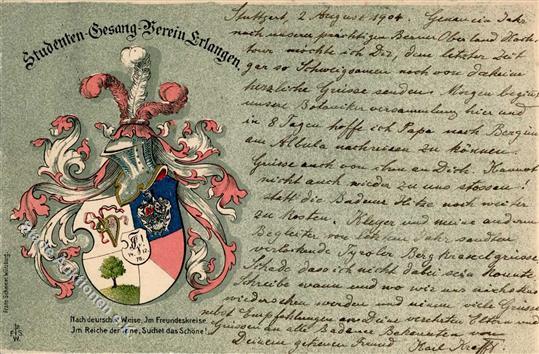 Studenten-Gesang-Verein Erlangen.
Stuttgart, 2 August 1904. Genau ein Jahr
nach unserer prächtigen Berner Oberland Hoch-
tour möchte ich Dir, dem letzter Zeit
gar so Schweigsamen noch von daheim
herzliche Grüsse senden. Morgen beginnt
unsere Botaniker versammlung hier und
in 8 Tagen hoffe ich Papa nach Bergün
am Albula nachreisen zu können.
Grüsse auch von ihm an Dich. Kannst
nicht auch wieder zu uns stossen!
statt die Badener Hitze noch weiter
zu kosten. und meine anderen
Begleiter vom Jahr sandten
verlockende Tyroler Berg grüsse
Schade dass ich nicht dabei sein konnte
Schreibe wann und wo wir uns nächstens
wiedersehen werden und nimm viele Grüsse
nebst Empfehlungen an Deine verehrten Eltern und
Grüssen an alle Badener Bekannten von
Deinem getreuen Freund Karl
Nach deutscher Weise, Im Freundeskreise.
Im Reiche der Töne, Suchet das Schöne!